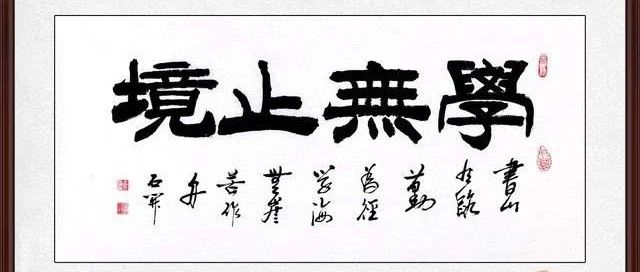 學無止境
書山
有路
勤
為徑
学海
無崖
苦作
舟
石